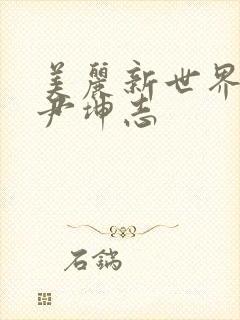 美麗新世界
尹坤志
石鍋